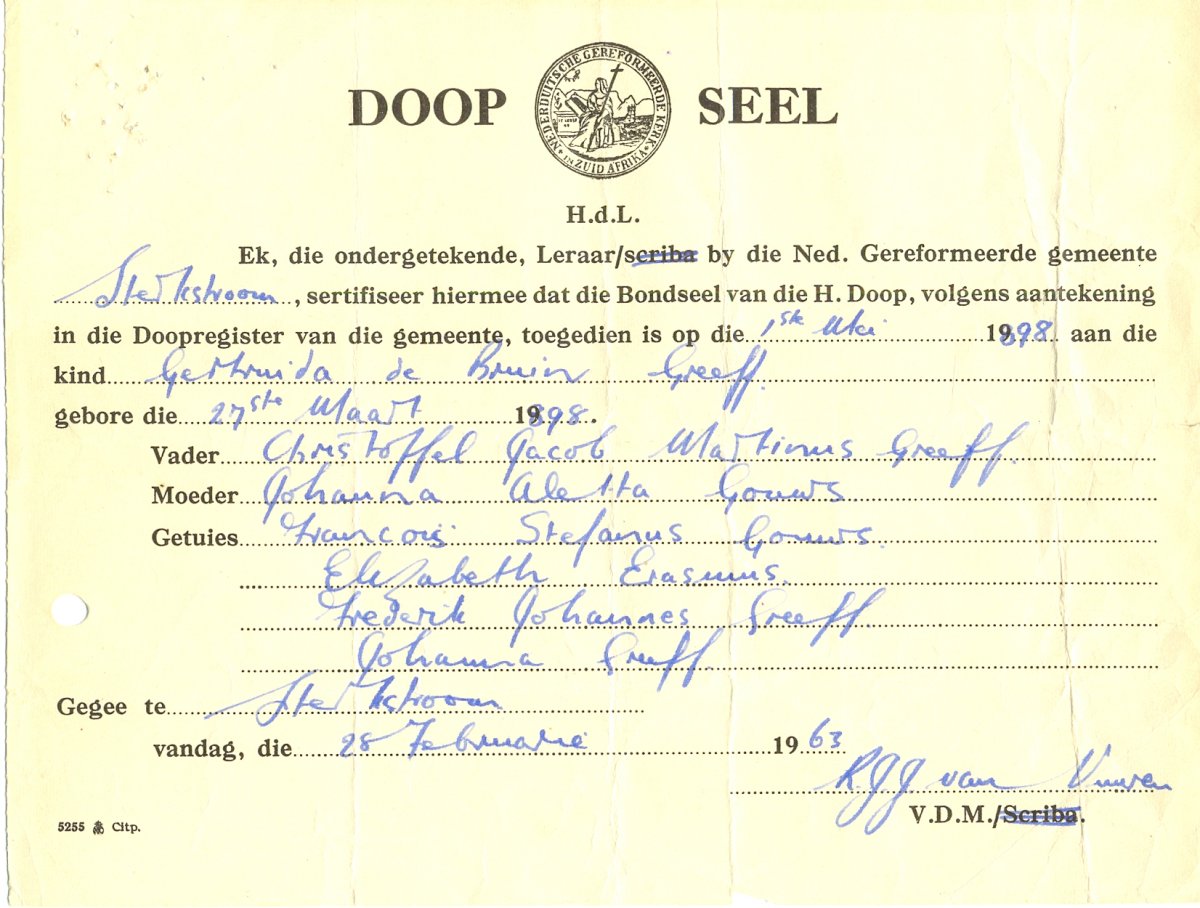 DOOP SEEL
NEDERDUITSCHE GEREFORMEERDE KERK
IN ZUID AFRIKA
H.d.L.
Ek, die ondergetekende, Leraar/scriba by die Ned. Gereformeerde gemeente
Sterkstroom, sertifiseer hiermee dat die Bondseel van die H. Doop, volgens aantekening
in die Doopregister van die gemeente, toegedien is op die 1ste Mei 1898 aan die
kind Gertruida de Bruin Greeff.
gebore die 27ste Maart 1898.
Vader Christoffel Jacob Martinus Greeff.
Moeder Johanna Aletta Gouws
Getuies Francois Stefanus Gouws.
Elizabeth Erasmus.
Frederik Johannes Greeff.
Johanna Greeff.
Gegee te Sterkstroom
vandag, die 28 Februarie 1963
R.J.J. van Vuuren
V.D.M./Scriba.
5255 Citp.